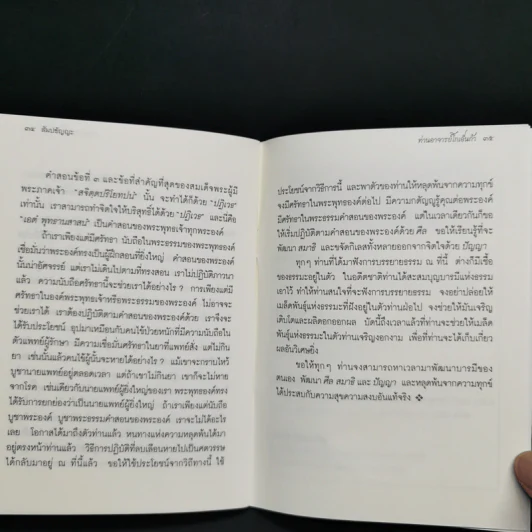 ๓๔ สัมปชัญญะ
คำสอนข้อที่ ๓ และข้อที่สำคัญที่สุดของสมเด็จพระผู้มี
พระภาคเจ้า "สจิตตปริโยทปนํ" นั้น จะทำได้ก็ด้วย "ปฏิเวธ"
เท่านั้น เราสามารถทำจิตใจให้บริสุทธิ์ได้ด้วย "ปฏิเวธ" และนี่คือ
"เอตํ พุทธานสาสนํ" เป็นคำสอนของพระพุทธเจ้าทุกพระองค์
ถ้าเราเพียงแต่มีศรัทธา นับถือในพระธรรมของพระพุทธองค์
เชื่อมั่นว่าพระพุทธองค์เป็นผู้ฝึกสอนที่ยิ่งใหญ่ คำสอนของพระองค์
นั้นน่าอัศจรรย์ แต่ถ้าเราไม่เดินไปตามที่ทรงสอน เราไม่ปฏิบัติภาวนา
แล้ว ความนับถือศรัทธานี้จะช่วยเราได้อย่างไร ? การเพียงแต่มี
ศรัทธาในองค์พระพุทธเจ้าหรือพระธรรมของพระองค์ ไม่อาจจะ
ช่วยเราได้ เราต้องปฏิบัติตามคำสอนของพระองค์ด้วย เราจึงจะ
ได้รับประโยชน์ อุปมาเหมือนกับคนไข้ป่วยหนักที่มีความนับถือใน
ตัวแพทย์ผู้รักษา มีความเชื่อมั่นศรัทธาในยาที่แพทย์สั่ง แต่ไม่กิน
ยา เช่นนั้นแล้วคนไข้ผู้นั้นจะหายได้อย่างไร ? แม้เขาจะกราบไหว้
บูชานายแพทย์อยู่ตลอดเวลา แต่ถ้าเขาไม่กินยา เขาก็จะไม่หาย
จากโรค เช่นเดียวกับนายแพทย์ผู้ยิ่งใหญ่ของเรา พระพุทธองค์ทรง
ได้รับการยกย่องว่าเป็นนายแพทย์ผู้ยิ่งใหญ่ ถ้าเราเพียงแต่นับถือ
บูชาพระองค์ บูชาพระธรรมคำสอนของพระองค์ เราจะไม่ได้อะไร
เลย โอกาสได้มาถึงตัวท่านแล้ว หนทางแห่งความหลุดพ้นได้มา
อยู่ตรงหน้าท่านแล้ว วิธีการปฏิบัติที่ลบเลือนหายไปเป็นศตวรรษ
ได้กลับมาอยู่ ณ ที่นี้แล้ว ขอให้ใช้ประโยชน์จากวิถีทางนี้ ใช้
ท่านอาจารย์โกเอ็นก้า ๓๕
ประโยชน์จากวิธีการนี้ และพาตัวของท่านให้หลุดพ้นจากความทุกข์
จงมีศรัทธาในพระพุทธองค์ต่อไป มีความกตัญญูรู้คุณต่อพระองค์
มีศรัทธาในพระธรรมคำสอนของพระองค์ แต่ในเวลาเดียวกันก็ขอ
ให้เริ่มปฏิบัติตามคำสอนของพระองค์ด้วย ศีล ขอให้เรียนรู้ที่จะ
พัฒนา สมาธิ และขจัดกิเลสทั้งหลายออกจากจิตใจด้วย ปัญญา
ทุกๆ ท่านที่ได้มาฟังการบรรยายธรรม ณ ที่นี้ ต่างก็มีเชื้อ
ของธรรมะอยู่ในตัว ในอดีตชาติท่านได้สะสมบุญบารมีแห่งธรรม
เอาไว้ ทำให้ท่านสนใจที่จะฟังการบรรยายธรรม จงอย่าปล่อยให้
เมล็ดพันธุ์แห่งธรรมะที่ฝังอยู่ในตัวท่านฝ่อไป จงช่วยให้มันเจริญ
เติบโตและผลิดอกออกผล บัดนี้ถึงเวลาแล้วที่ท่านจะช่วยให้เมล็ด
พันธุ์แห่งธรรมะในตัวท่านเจริญงอกงาม เพื่อที่ท่านจะได้เก็บเกี่ยว
ผลอันวิเศษยิ่ง
ขอให้ทุกๆ ท่านจงสามารถหาเวลามาพัฒนาบารมีของ
ตนเอง พัฒนา ศีล สมาธิ และ ปัญญา และหลุดพ้นจากความทุกข์
ได้ประสบกับความสุขความสงบอันแท้จริง ❖